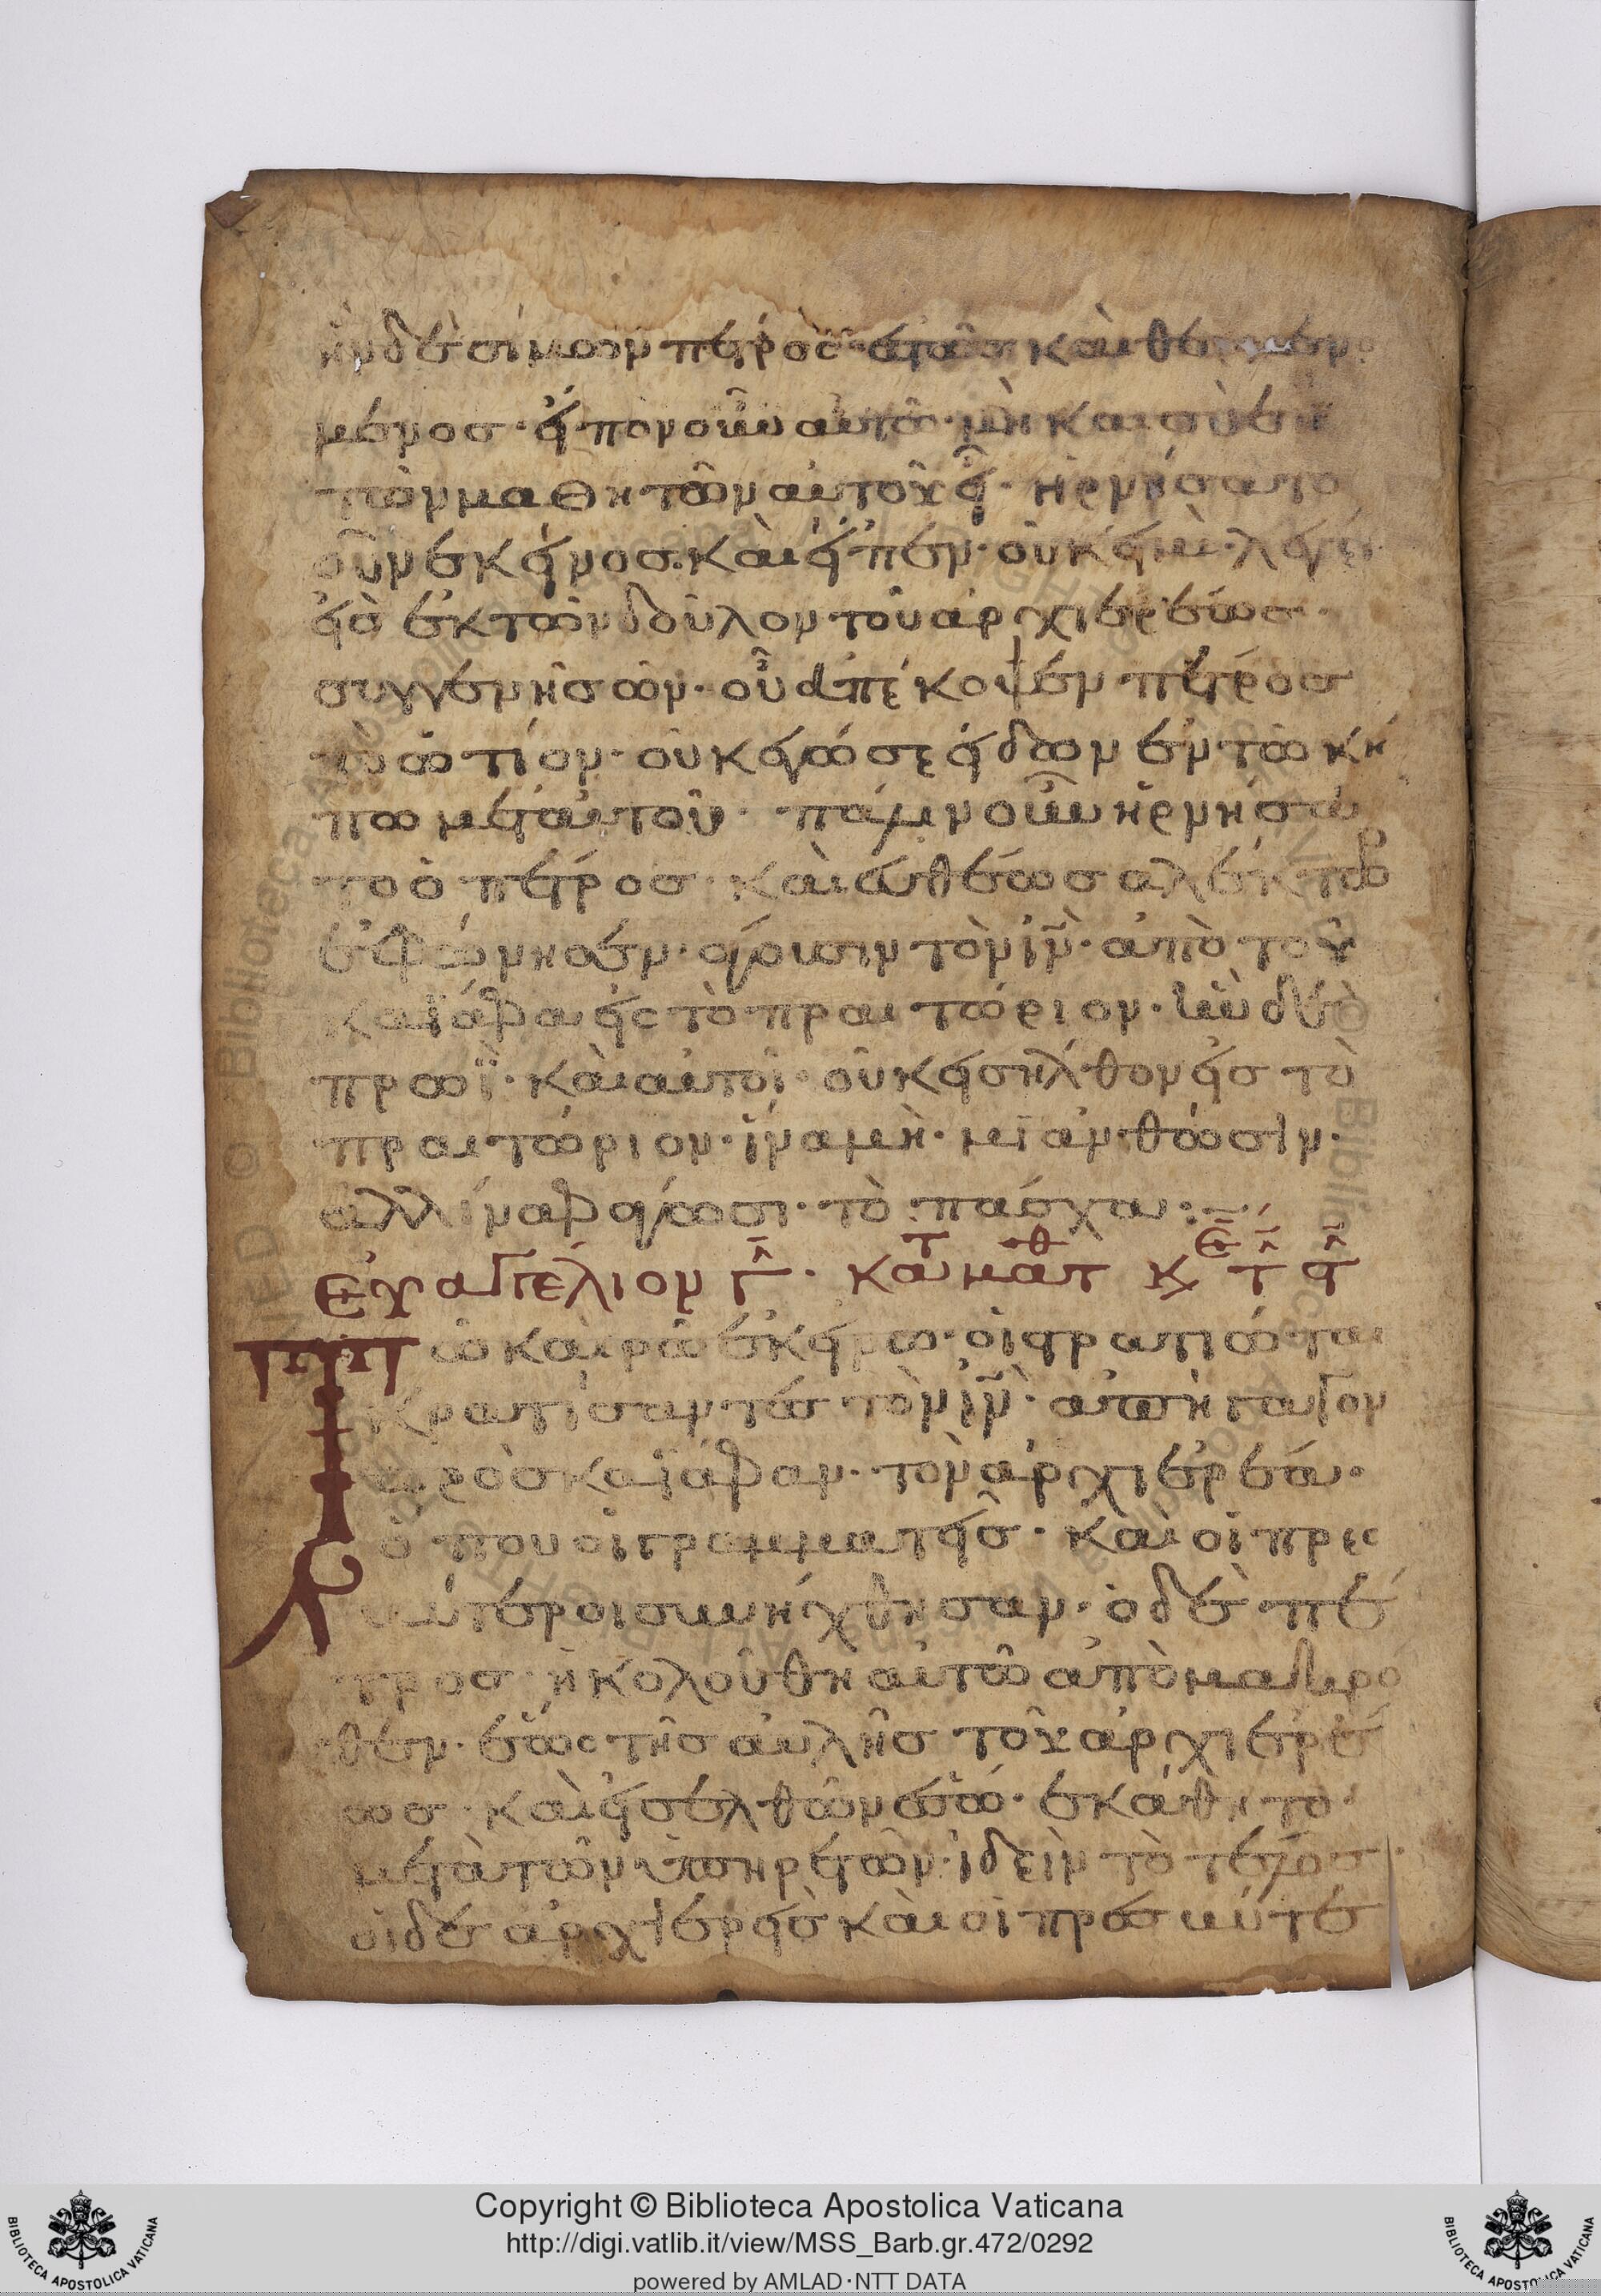 ἦν δὲ σίμων πέτρος ἑστῶς καὶ θερμενό
μένος· εἶπον οὖν αὐτῶ· μὴ καὶ σὺ ἐκ
τῶν μαθητῶν αὐτοῦ εἶ· ἠρνήσατο
οὖν ἐκεῖνος. καὶ εἶπεν· οὐκ εἰμὶ· λέγει
εἷς ἐκ τῶν δοῦλον τοῦ ἀρχιερέως·
συγγενὴς ὢν· οὗ ἀπέκοψεν πέτρος
τὸ ὠτίον· οὐκ ἐγώ σε εἶδων ἐν τῶ κή
πω μετ' αὐτοῦ· πάλιν οὖν ἠρνήσα
το ὁ πέτρος· καὶ εὐθέως αλέκτωρ
ἐφώνησεν· ἄγουσιν τὸν ἰν· ἀπὸ τοῦ
καϊάφα εἰς τὸ πραιτώριον· ἦν δὲ
πρωῒ· καὶ αὐτοὶ οὐκ εἰσῆλθον εἰς τὸ
πραιτώριον· ἵνα μὴ· μϊανθῶσιν·
αλλ ίνα φάγωσι· τὸ πάσχα:
Εὐαγγέλιον γ· κατ ματθ κε τ
Τῶ καιρῶ ἐκείνω· οἱ στρατιώται
κρατίσαντες τὸν ἰν· ἀπήγαγον
πρὸς καϊάφαν· τὸν ἀρχιερέα·
ὅπου οἱ γραμματεῖς· καὶ οἱ πρεσ
βύτεροι συνήχθησαν· ὁ δὲ πέ
τρος ἠκολούθη αὐτῶ ἀπὸ μακρο
θεν· ἕως τῆς αὐλῆς τοῦ ἀρχιερέ
ως· καὶ εἰσελθὼν ἔσω· ἐκάθητο·
μετὰ τῶν ὑπηρετῶν· ἰδεῖν τὸ τέλος·
οἱ δὲ ἀρχιερεῖς καὶ οἱ πρεσβύτε
Copyright © Biblioteca Apostolica Vaticana
http://digi.vatlib.it/view/MSS_Barb.gr.472/0292
powered by AMLAD·NTT DATA